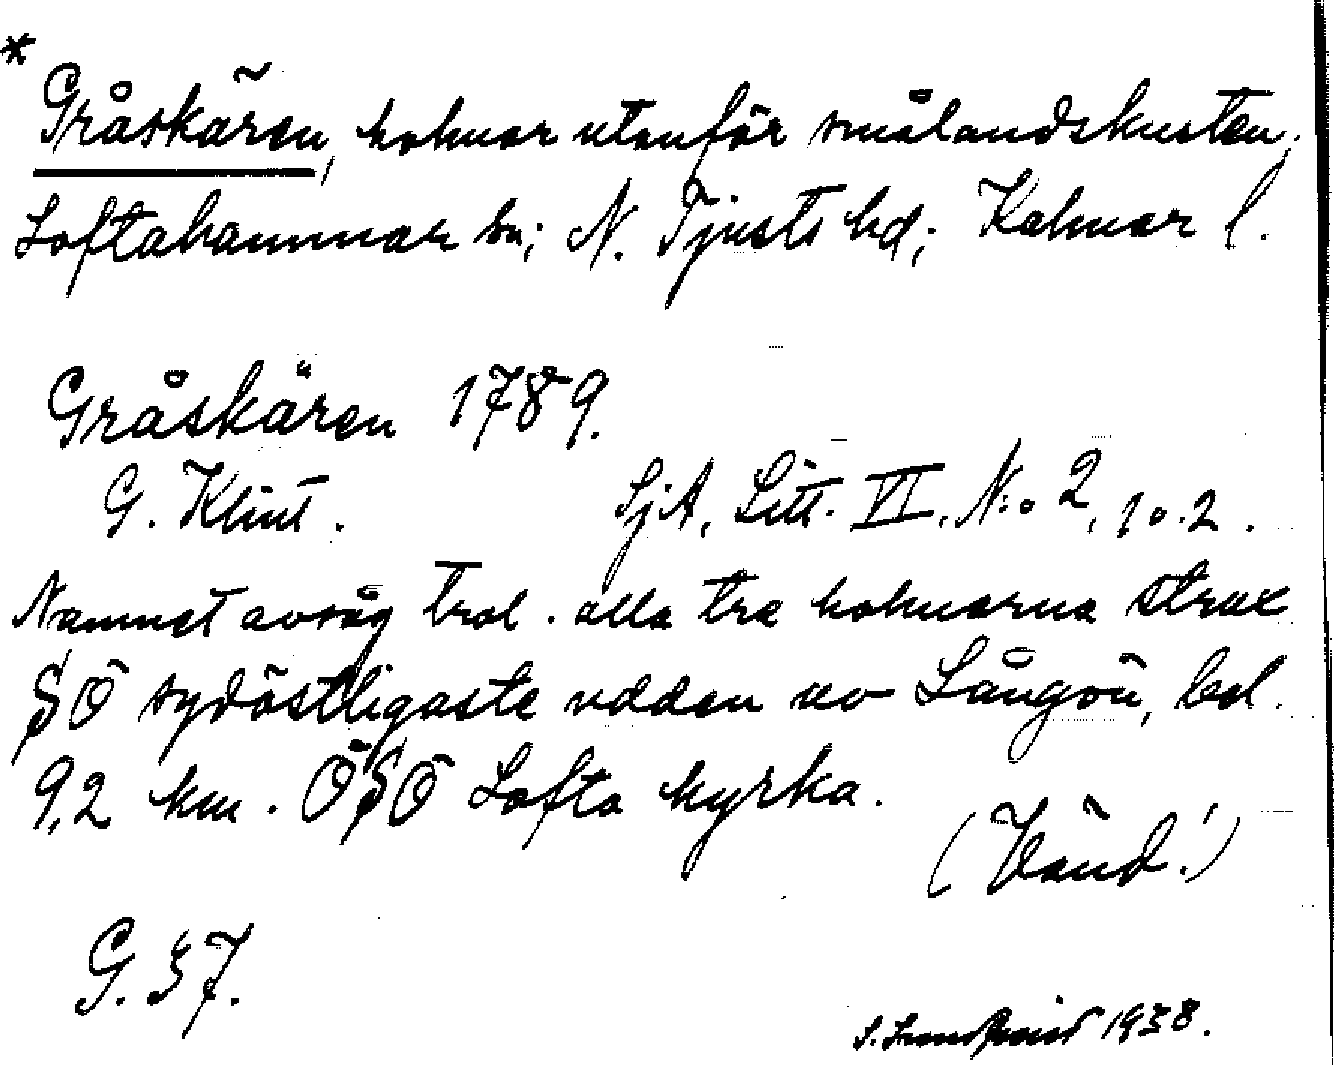 * Gråskären, holmar utanför smålandskusten;
Loftahammar sn; N. Tjusts hd; Kalmar l.
Gråskären 1789.
G. Klint. SjA, Litt. VI. N:o 2, 1 o. 2.
Namnet avsåg trol. alla tre holmarna strax
SÖ sydöstligaste udden av Långön, bel.
9,2 km. ÖSÖ Lofta kyrka.
(Vänd!)
G. 37.
S. Lundqvist 1938.